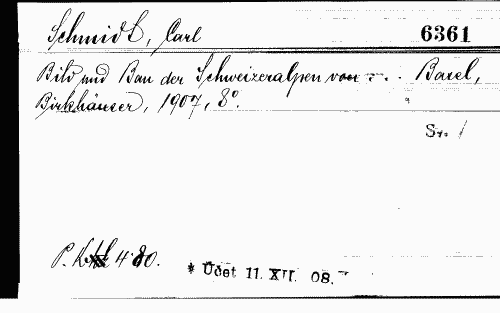 Schmidt, Carl 6361
Bild und Bau der Schweizeralpen von - . . Basel,
Birkhäuser, 1907, 8°.
P. 480.
* Üdet 11. XII. 08.